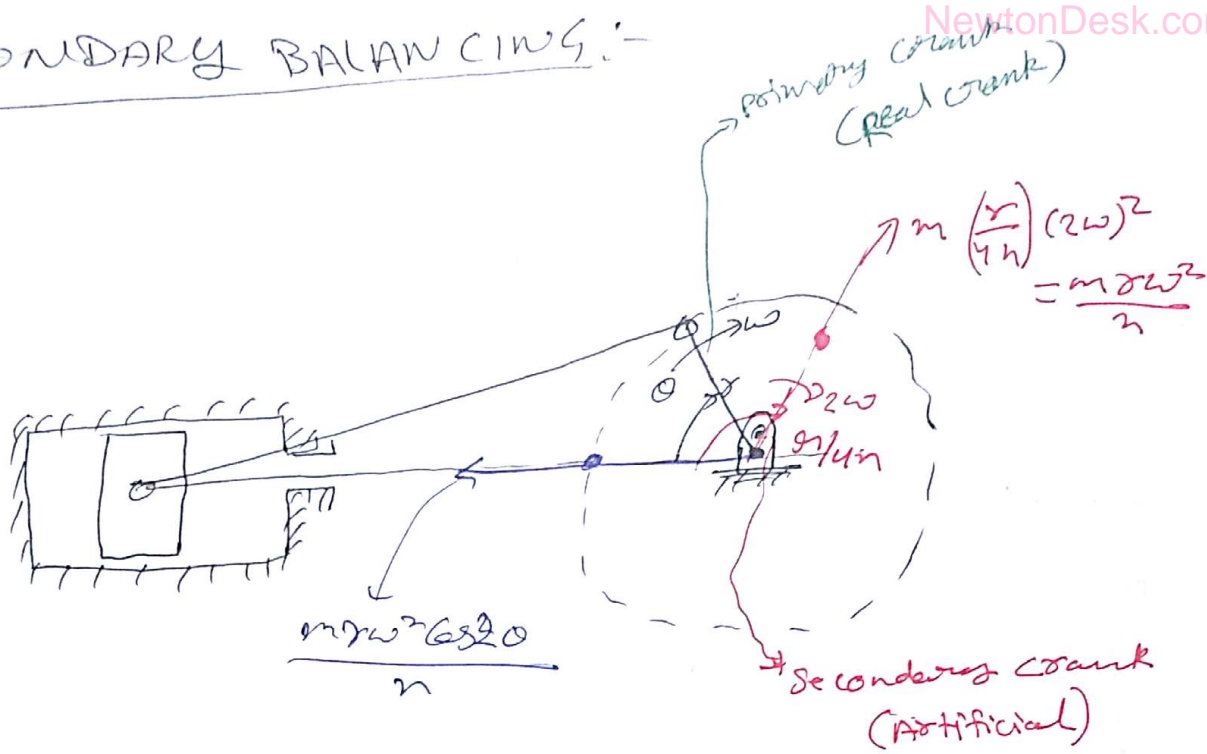 NewtonDesk.co
ONDARY BALANCING :-
primary crank
(Real crank)
m (r/4n) (2ω)²
= mrω²/n
ω
θ
r
2ω
r/4n
mrω² Cos2θ
n
Secondary crank
(Artificial)